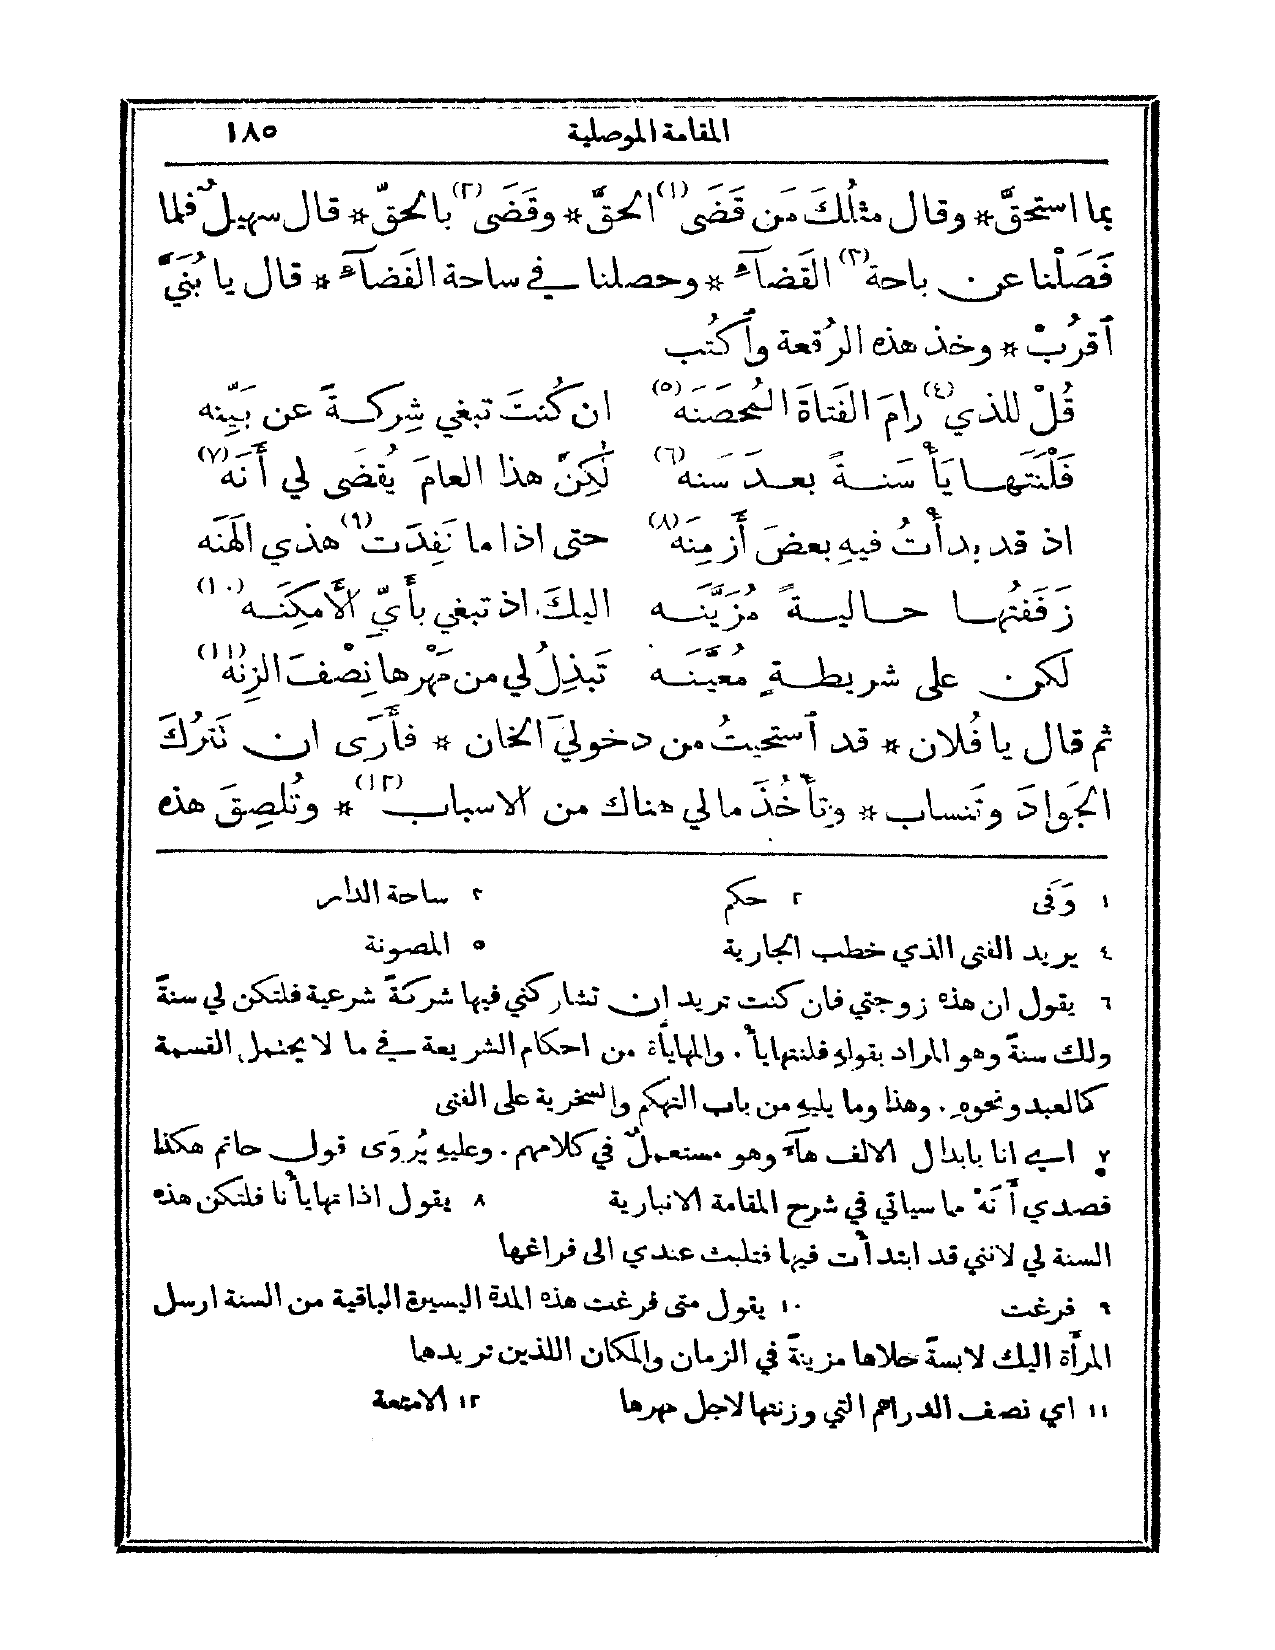 المقامة الموصلية ١٨٥
بما استحقَّ * وقال مثلُكَ مَن قَضَى(١) الحقَّ * وقَضَى(٢) بالحقّ * قال سهيلٌ فلما
فَصَلْنا عن باحة(٣) القَضآء * وحصلنا في ساحة الفَضآء * قال يا بُنَيَّ
ٱقرُبْ * وخذ هذه الرُقعة وٱكتُب
قُلْ للذي(٤) رامَ الفَتاةَ المُحصَنَه(٥) ان كُنتَ تبغي شِركةً عن بَيِّنه
فَلْنَتَهايَأْ سَنةً بعدَ سَنه(٦) لٰكِنَّ هذا العامَ يُقضَى لي أَنَه(٧)
اذ قد بدأْتُ فيهِ بعضَ أَزمِنَه(٨) حتى اذا ما نَفِدَت(٩) هذي الهَنَه
زَفَفتُها حاليةً مُزَيَّنَه اليكَ اذ تبغي بأَيِّ الأَمكِنَه(١٠)
لكن على شريطةٍ مُعيَّنَه تَبذِلُ لي من مَهْرها نِصْفَ الزِنَه(١١)
ثم قال يا فُلان * قد ٱستحيتُ من دخوليَ الخان * فأَرَى ان تَترُكَ
الجَوادَ وتَنساب * وتأْخُذَ ما لي هناك من الاسباب(١٢) * وتُلصِقَ هذه
١ وَفَى ٢ حكم ٣ ساحة الدار
٤ يريد الفتى الذي خطب الجارية ٥ المصونة
٦ يقول ان هذه زوجتي فان كنت تريد ان تشاركني فيها شركةً شرعية فلتكن لي سنةً
ولك سنةً وهو المراد بقولهِ فلنتهايأْ. والمهايأَة من احكام الشريعة في ما لا يحتمل القسمة
كالعبد ونحوهِ. وهذا وما يليهِ من باب التهكم والسخرية على الفتى
٧ اي انا بابدال الالف هآءً وهو مستعملٌ في كلامهم. وعليهِ يُروَى قول حاتم هكذا
فصدي أَنَهْ مما سياتي في شرح المقامة الانبارية ٨ يقول اذا تهايأْنا فلتكن هذه
السنة لي لانني قد ابتدأْت فيها فتلبث عندي الى فراغها
٩ فرغت ١٠ يقول متى فرغت هذه المدة اليسيرة الباقية من السنة ارسل
المرأَة اليك لابسةً حلاها مزينةً في الزمان والمكان اللذين تريدهما
١١ اي نصف الدراهم التي وزنتها لاجل مهرها ١٢ الامتعة